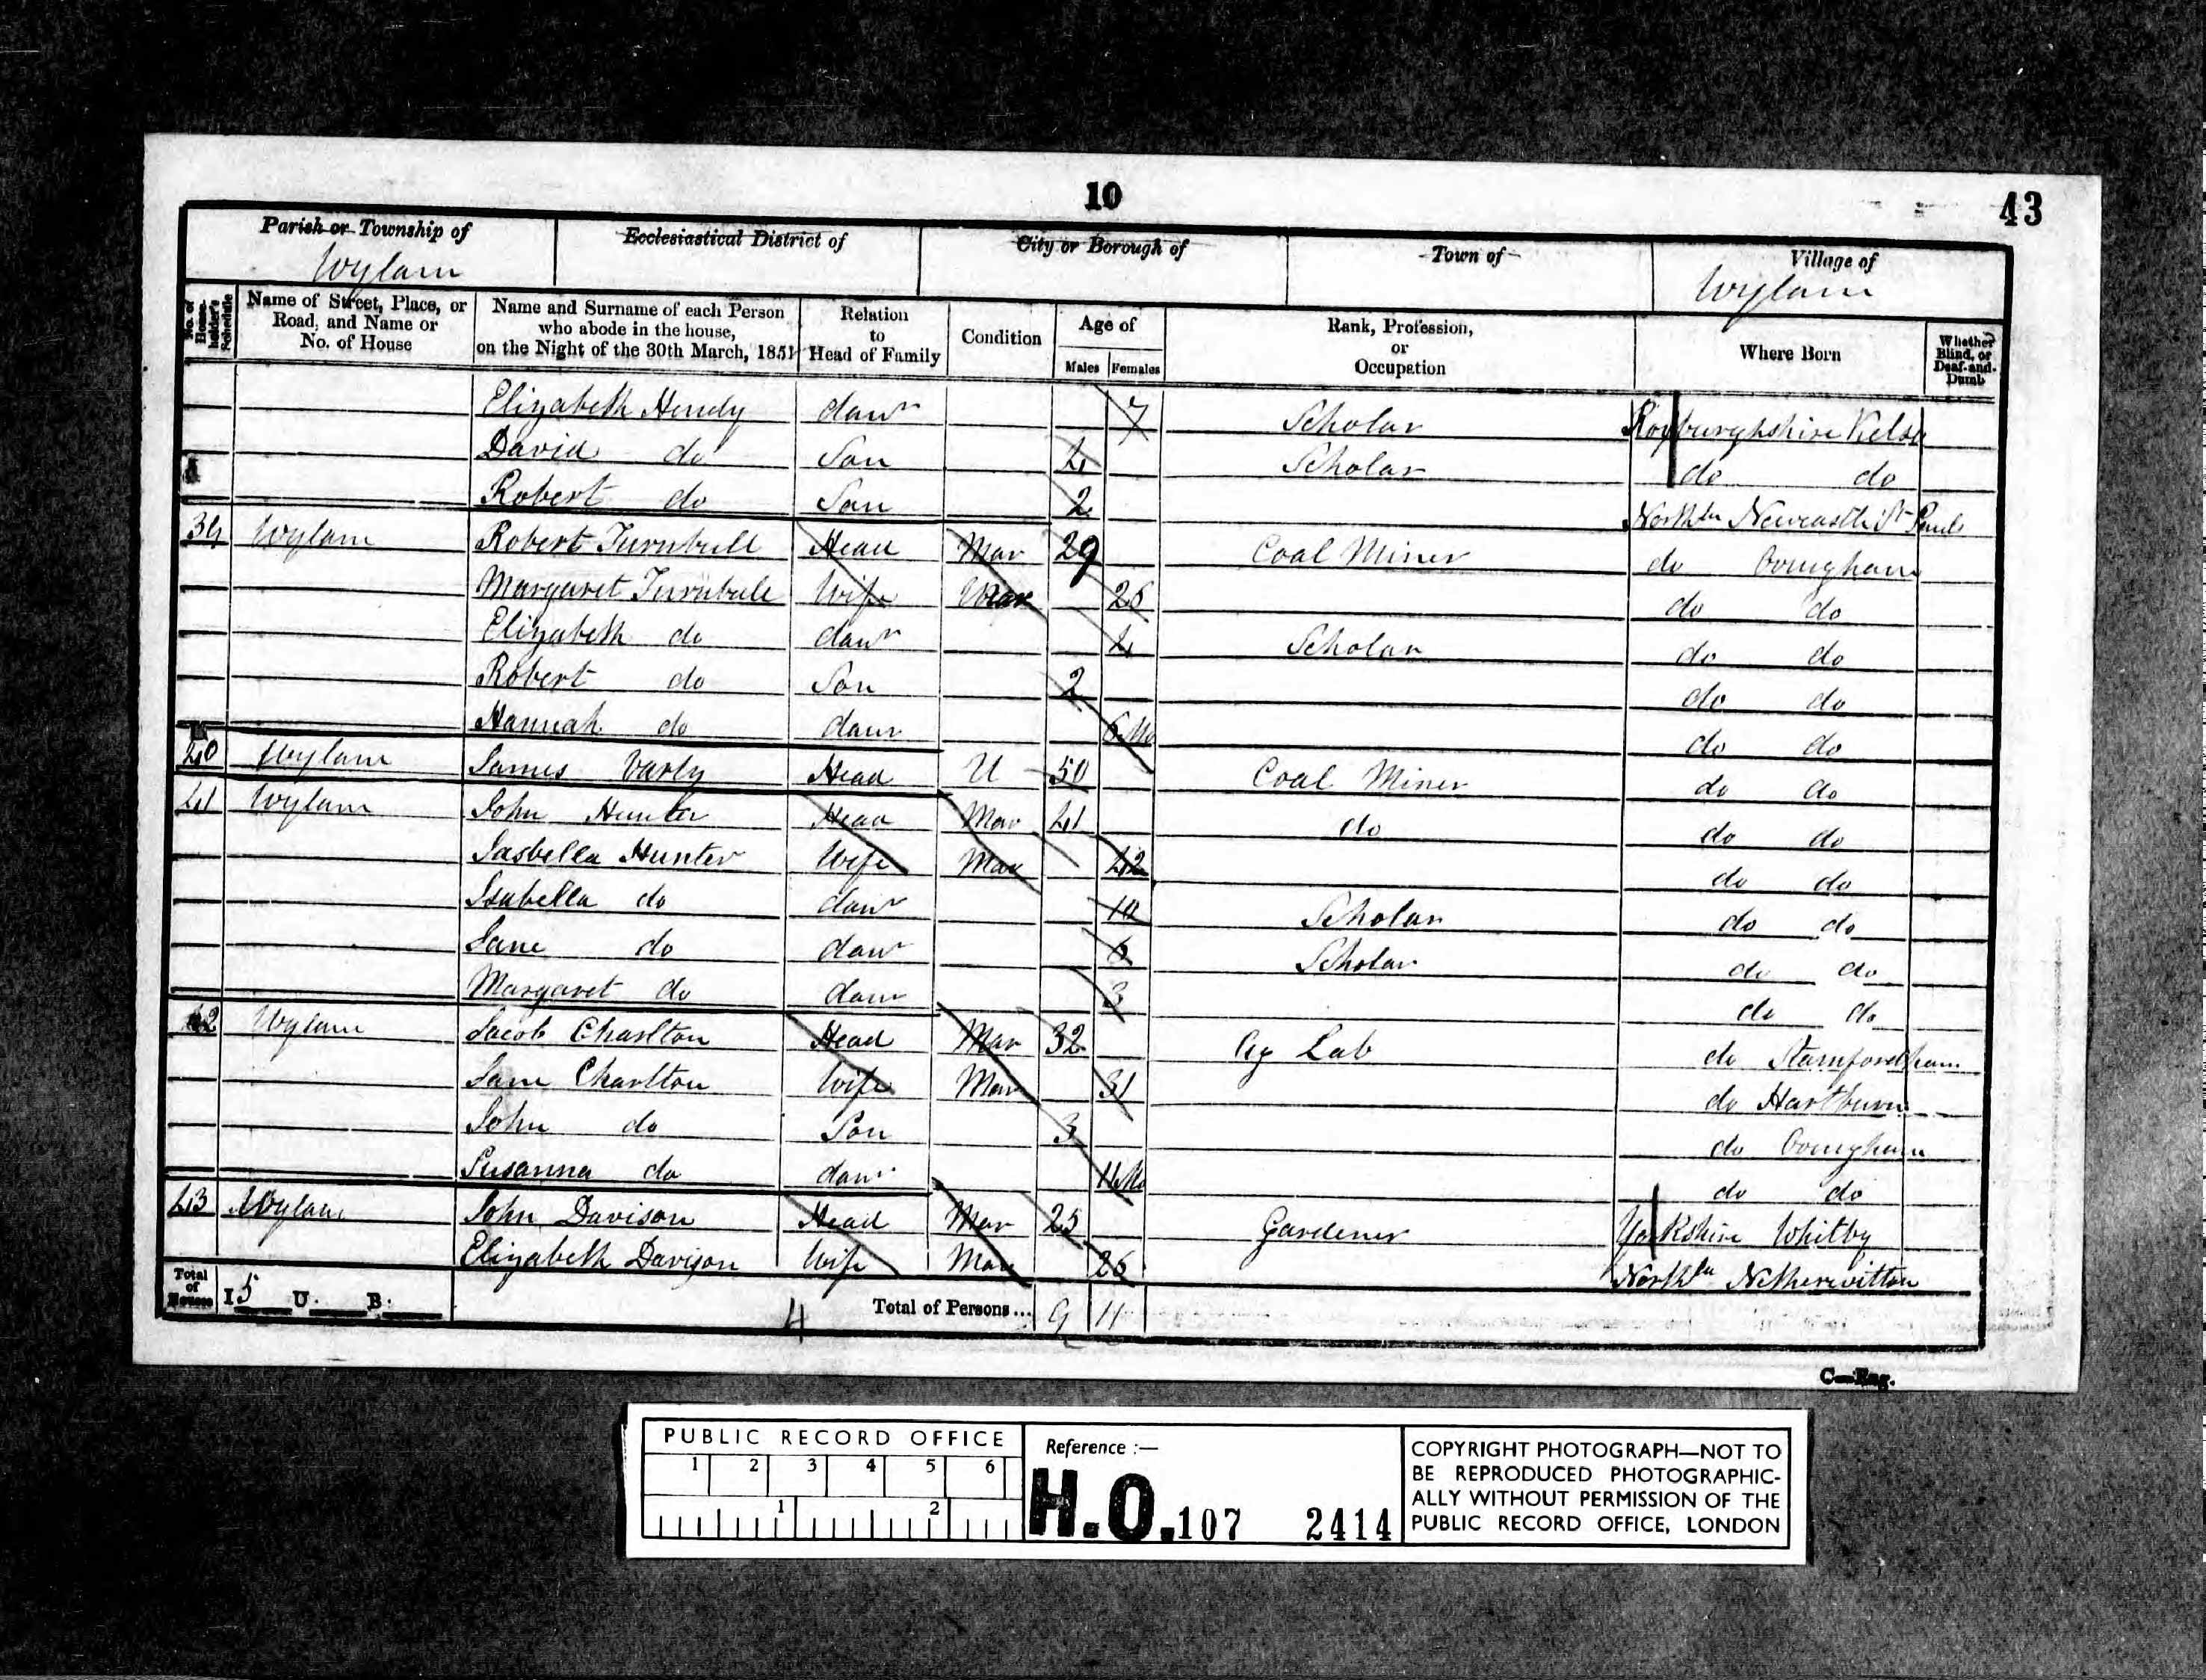 10
43
Parish or Township of
Wylam
Ecclesiastical District of
City or Borough of
Town of
Village of
Wylam
No. of House-holder's Schedule
Name of Street, Place, or Road, and Name or No. of House
Name and Surname of each Person who abode in the house, on the Night of the 30th March, 1851
Relation to Head of Family
Condition
Age of
Males Females
Rank, Profession, or Occupation
Where Born
Whether Blind, or Deaf-and-Dumb
Elizabeth Hendy dawr 7 Scholar Roxburghshire Kelso
David do Son 4 Scholar do do
Robert do Son 2 Northln Newcastle St Pauls
39 Wylam Robert Turnbull Head Mar 29 Coal Miner do Ovingham
Margaret Turnbull Wife Mar 26 do do
Elizabeth do dawr 4 Scholar do do
Robert do Son 2 do do
Hannah do dawr 6 Mo do do
40 Wylam James Varly Head U 50 Coal Miner do do
41 Wylam John Hunter Head Mar 41 do do do
Isabella Hunter Wife Mar 42 do do
Isabella do dawr 10 Scholar do do
Jane do dawr 6 Scholar do do
Margaret do dawr 3 do do
42 Wylam Jacob Charlton Head Mar 32 Ag Lab do Stamfordham
Jane Charlton Wife Mar 31 do Hartburn
John do Son 3 do Ovingham
Susanna do dawr 11 Mo do do
43 Wylam John Davison Head Mar 25 Gardener Yorkshire Whitby
Elizabeth Davison Wife Mar 26 Northln Netherwitton
Total of Houses I 5 U B
4
Total of Persons... 9 11
C—Eng.
PUBLIC RECORD OFFICE
1 2 3 4 5 6
1 2
Reference :—
H.O. 107 2414
COPYRIGHT PHOTOGRAPH—NOT TO
BE REPRODUCED PHOTOGRAPHIC-
ALLY WITHOUT PERMISSION OF THE
PUBLIC RECORD OFFICE, LONDON